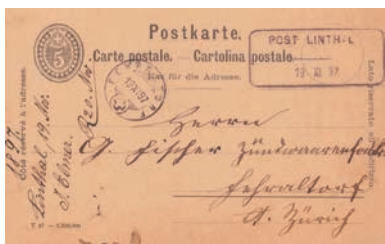 Postkarte.
Carte postale. — Cartolina postale
Nur für die Adresse.
5
POST LINTHAL
19 XI 97
19 XI 97
Côté réservé à l'adresse.
Lato riservato all'indirizzo
1897
Linthal, 19. Nov.
R 20. Nov
Herrn
G. Fischer Zündwaarenfabrik
Fehraltorf
Ct. Zürich